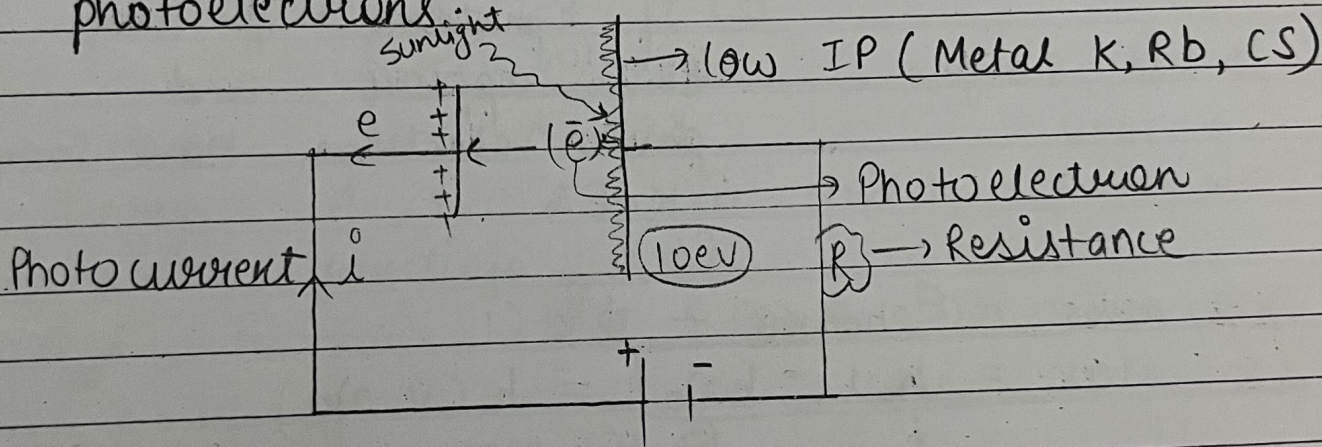 photoelectrons.
sunlight
→ low IP (Metal K, Rb, CS)
+ + + + + +
e
(e̅)
→ Photoelectron
Photocurrent i
10ev
R → Resistance
+ -